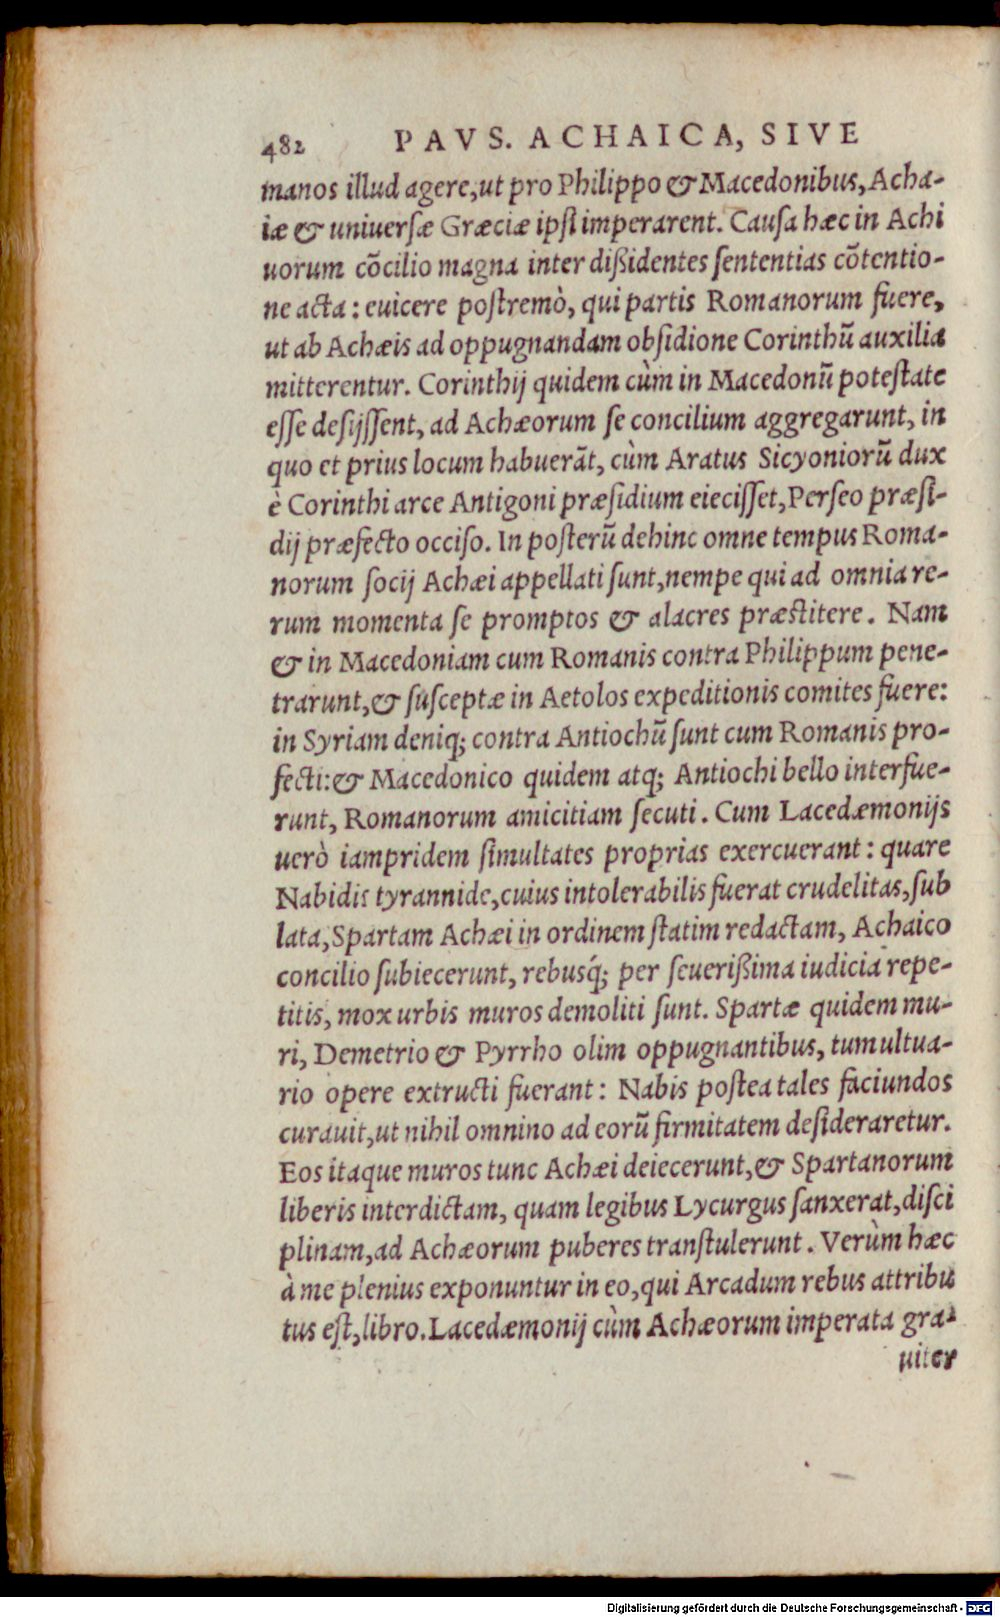 482 PAVS. ACHAICA, SIVE
manos illud agere,ut pro Philippo & Macedonibus,Acha-
iæ & uniuerſæ Græciæ ipſi imperarent. Cauſa hæc in Achi
uorum cõcilio magna inter dißidentes ſententias cõtentio-
ne acta: euicere poſtremò, qui partis Romanorum fuere,
ut ab Achæis ad oppugnandam obſidione Corinthũ auxilia
mitterentur. Corinthij quidem cùm in Macedonũ poteſtate
eſſe deſijſſent, ad Achæorum ſe concilium aggregarunt, in
quo et prius locum habuerãt, cùm Aratus Sicyoniorũ dux
è Corinthi arce Antigoni præſidium eieciſſet,Perſeo præſi-
dij præfecto occiſo. In poſterũ dehinc omne tempus Roma-
norum ſocij Achæi appellati ſunt,nempe qui ad omnia re-
rum momenta ſe promptos & alacres præſtitere. Nam
& in Macedoniam cum Romanis contra Philippum pene-
trarunt,& ſuſceptæ in Aetolos expeditionis comites fuere:
in Syriam deniq; contra Antiochũ ſunt cum Romanis pro-
fecti:& Macedonico quidem atq; Antiochi bello interfue-
runt, Romanorum amicitiam ſecuti. Cum Lacedæmonijs
uerò iampridem ſimultates proprias exercuerant: quare
Nabidis tyrannide,cuius intolerabilis fuerat crudelitas,ſub
lata,Spartam Achæi in ordinem ſtatim redactam, Achaico
concilio ſubiecerunt, rebusq́; per ſeuerißima iudicia repe-
titis, mox urbis muros demoliti ſunt. Spartæ quidem mu-
ri, Demetrio & Pyrrho olim oppugnantibus, tumultua-
rio opere extructi fuerant: Nabis poſtea tales faciundos
curauit,ut nihil omnino ad eorũ firmitatem deſideraretur.
Eos itaque muros tunc Achæi deiecerunt,& Spartanorum
liberis interdictam, quam legibus Lycurgus ſanxerat,diſci
plinam,ad Achæorum puberes tranſtulerunt. Verùm hæc
à me plenius exponuntur in eo,qui Arcadum rebus attribu
tus eſt,libro.Lacedæmonij cùm Achæorum imperata gra-
uiter
Digitalisierung gefördert durch die Deutsche Forschungsgemeinschaft - DFG